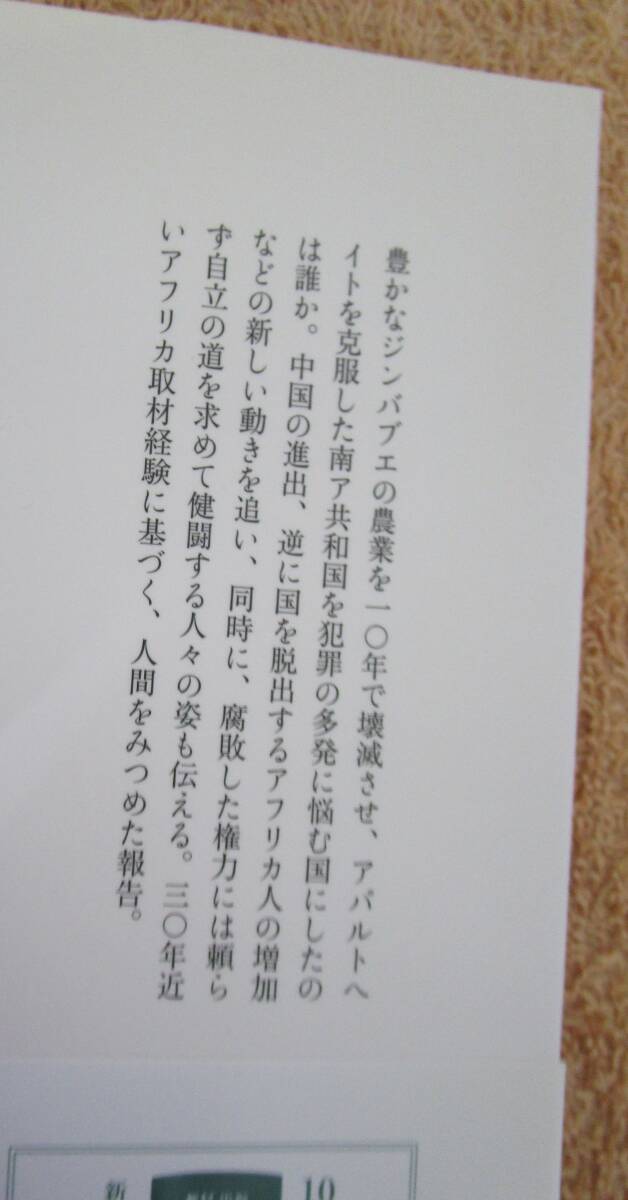 豊かなジンバブエの農業を一〇年で壊滅させ、アパルトヘ
イトを克服した南ア共和国を犯罪の多発に悩む国にしたの
は誰か。中国の進出、逆に国を脱出するアフリカ人の増加
などの新しい動きを追い、同時に、腐敗した権力には頼ら
ず自立の道を求めて健闘する人々の姿も伝える。三〇年近
いアフリカ取材経験に基づく、人間をみつめた報告。
10
新